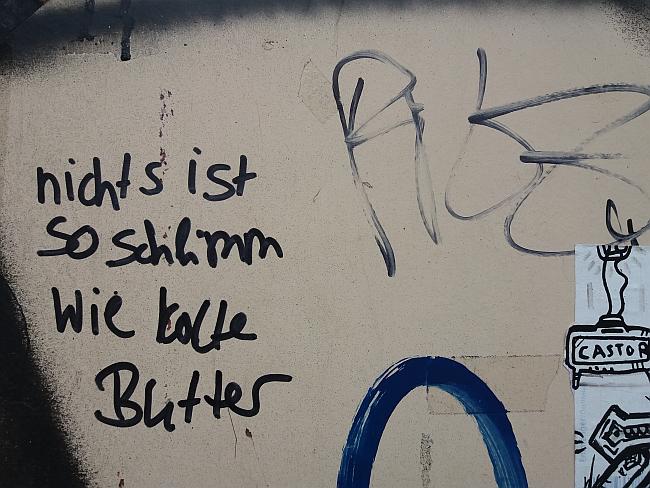 nichts ist
so schlimm
wie kalte
Butter
CASTOR